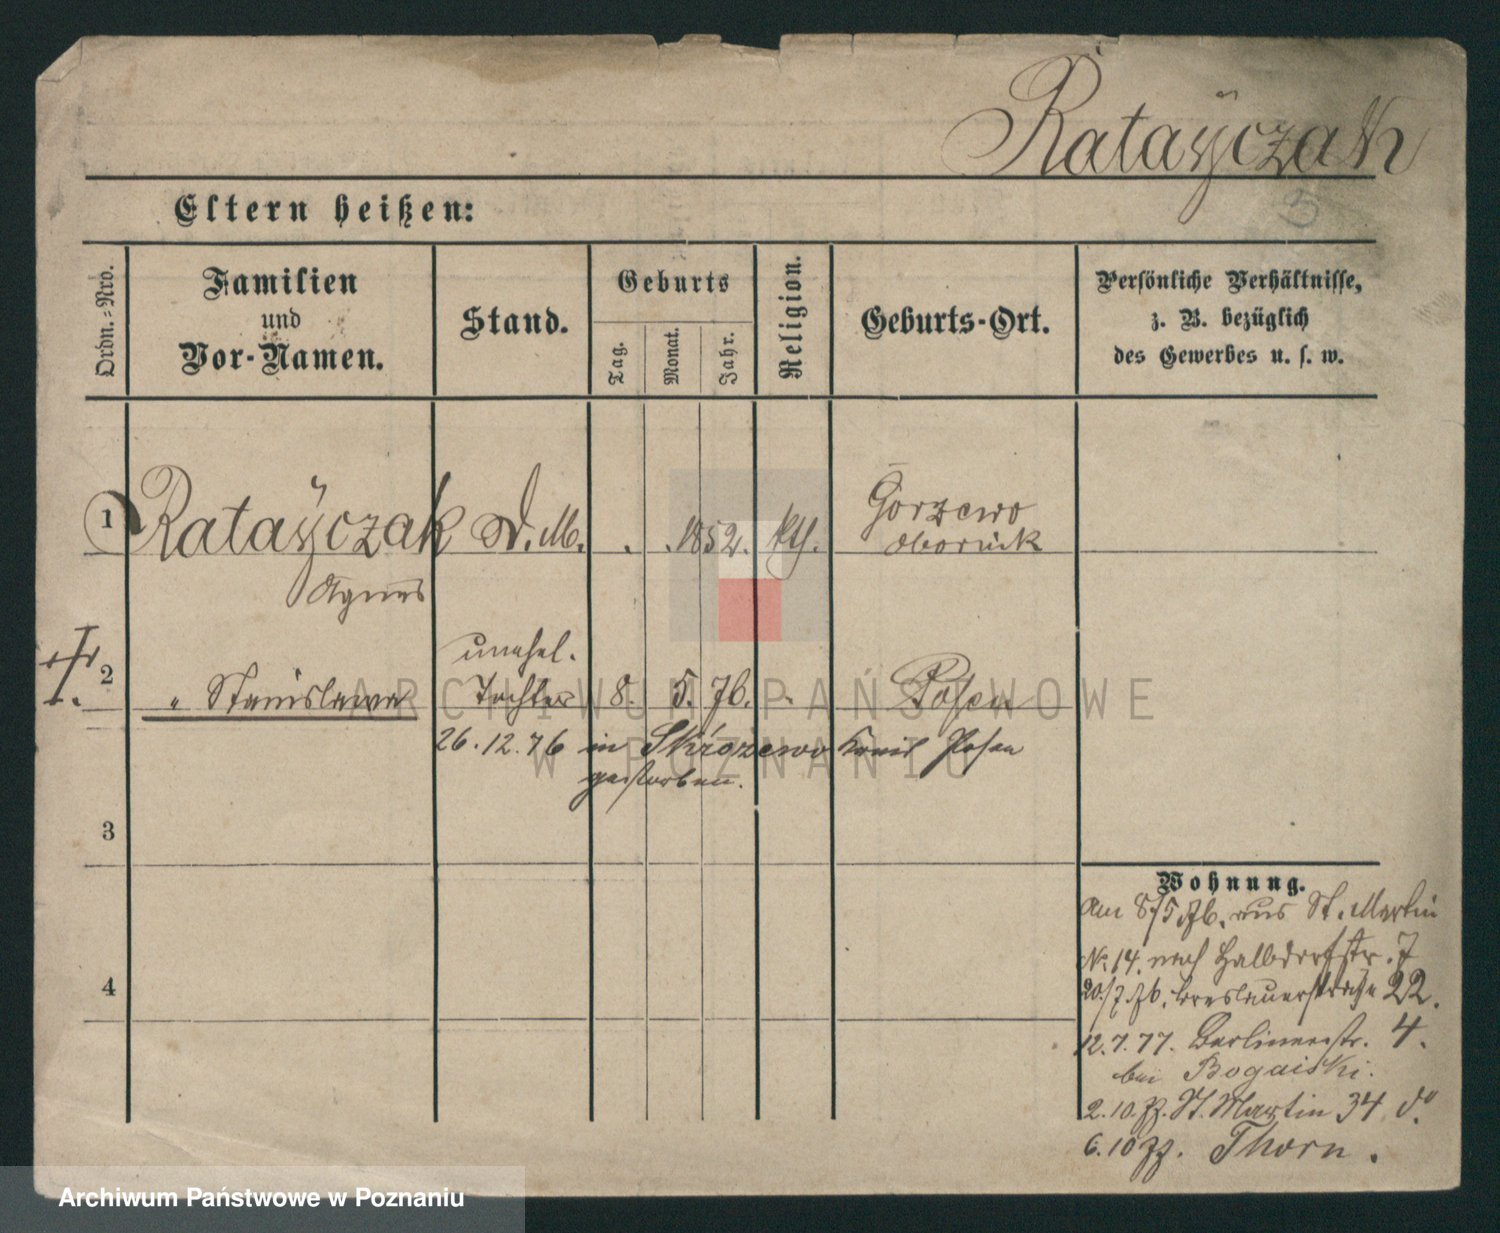 Ratayczak
3
Eltern heißen:
Ordn.-Nro.
Familien
und
Vor-Namen.
Stand.
Geburts
Tag.
Monat.
Jahr.
Religion.
Geburts-Ort.
Persönliche Verhältnisse,
z. B. bezüglich
des Gewerbes u. s. w.
1 Ratayczak D. M. . . 1852. kth. Gorzewo
Obornick
Agnes
unehel.
2 " Stanislawa Tochter 8. 5. 76. " Posen
26.12.76 in Skrozewo Kreis Posen
gestorben.
3
4
Wohnung.
Am 8/5 76. aus St. Martin
No 14. nach Halbdorfstr. 7
20./7.76. Breslauerstraße 22.
12.7.77. Berlinerstr. 4.
bei Bogaiski.
2.10.77. St. Martin 34 do
6.10 77. Thorn.
ARCHIWUM PAŃSTWOWE
W POZNANIU
Archiwum Państwowe w Poznaniu